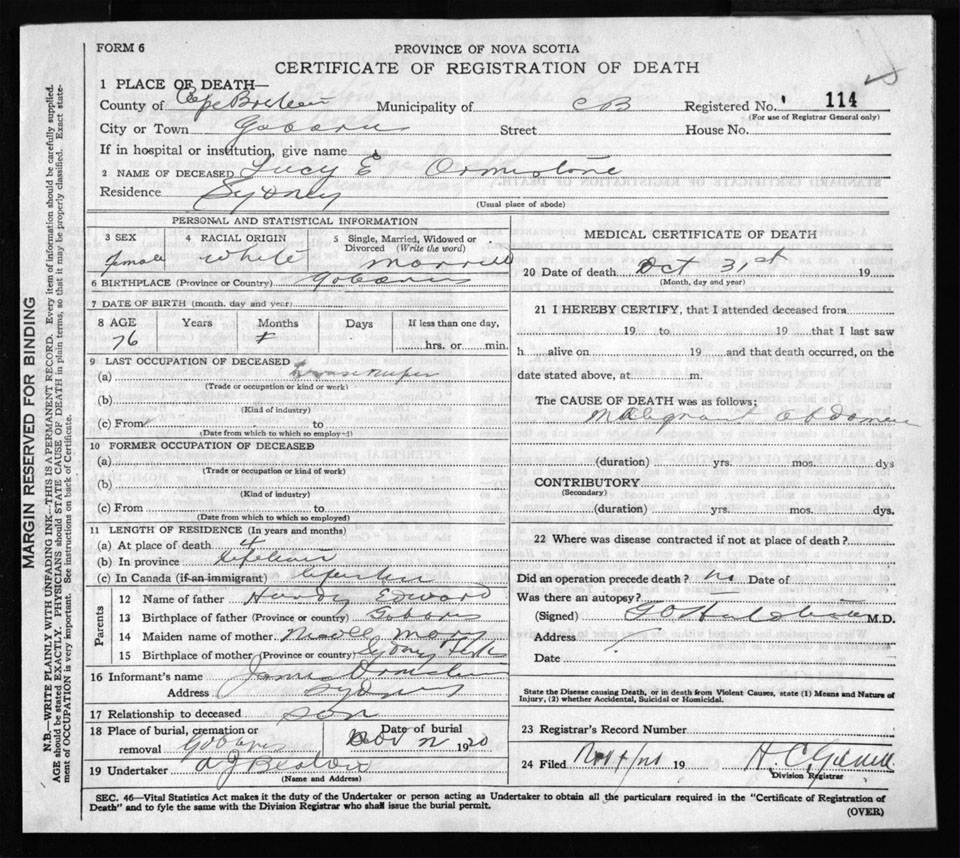 FORM 6
PROVINCE OF NOVA SCOTIA
CERTIFICATE OF REGISTRATION OF DEATH
1 PLACE OF DEATH—
County of Cape Breton Municipality of CB Registered No. 114
(For use of Registrar General only)
City or Town Gabarus Street House No.
If in hospital or institution, give name
2 NAME OF DECEASED Lucy E Ormistone
Residence Sydney
(Usual place of abode)
PERSONAL AND STATISTICAL INFORMATION
3 SEX 4 RACIAL ORIGIN 5 Single, Married, Widowed or Divorced (Write the word)
female White Married
6 BIRTHPLACE (Province or Country) Gabarus
7 DATE OF BIRTH (month, day and year)
8 AGE Years Months Days If less than one day,
76 hrs. or min.
9 LAST OCCUPATION OF DECEASED
(a) Housekeeper
(Trade or occupation or kind or work)
(b)
(Kind of industry)
(c) From to
(Date from which to which so employed)
10 FORMER OCCUPATION OF DECEASED
(a)
(Trade or occupation or kind of work)
(b)
(Kind of industry)
(c) From to
(Date from which to which so employed)
11 LENGTH OF RESIDENCE (In years and months)
(a) At place of death 4
(b) In province lifetime
(c) In Canada (if an immigrant) lifetime
Parents
12 Name of father Hardy Edward
13 Birthplace of father (Province or country) Gabarus
14 Maiden name of mother Mary
15 Birthplace of mother (Province or country) Sydney
16 Informant's name James Ormiston
Address Sydney
17 Relationship to deceased son
18 Place of burial, cremation or removal Gabarus Date of burial Nov 2 1920
19 Undertaker A J Beaton
(Name and Address)
MEDICAL CERTIFICATE OF DEATH
20 Date of death Oct 31st 19
(Month, day and year)
21 I HEREBY CERTIFY, that I attended deceased from
19 to 19 that I last saw
h alive on 19 and that death occurred, on the
date stated above, at m.
The CAUSE OF DEATH was as follows;
Malignant abdomen
(duration) yrs. mos. dys
CONTRIBUTORY
(Secondary)
(duration) yrs. mos. dys.
22 Where was disease contracted if not at place of death?
Did an operation precede death? no Date of
Was there an autopsy?
(Signed) M.D.
Address
Date
State the Disease causing Death, or in death from Violent Causes, state (1) Means and Nature of
Injury, (2) whether Accidental, Suicidal or Homicidal.
23 Registrar's Record Number
24 Filed 19 H. C.
Division Registrar
SEC. 46—Vital Statistics Act makes it the duty of the Undertaker or person acting as Undertaker to obtain all the particulars required in the "Certificate of Registration of
Death" and to fyle the same with the Division Registrar who shall issue the burial permit.
(OVER)
MARGIN RESERVED FOR BINDING
N.B.—WRITE PLAINLY WITH UNFADING INK—THIS IS A PERMANENT RECORD. Every item of information should be carefully supplied.
AGE should be stated EXACTLY. PHYSICIANS should STATE CAUSE OF DEATH in plain terms, so that it may be properly classified. Exact state-
ment of OCCUPATION is very important. See instructions on back of Certificate.